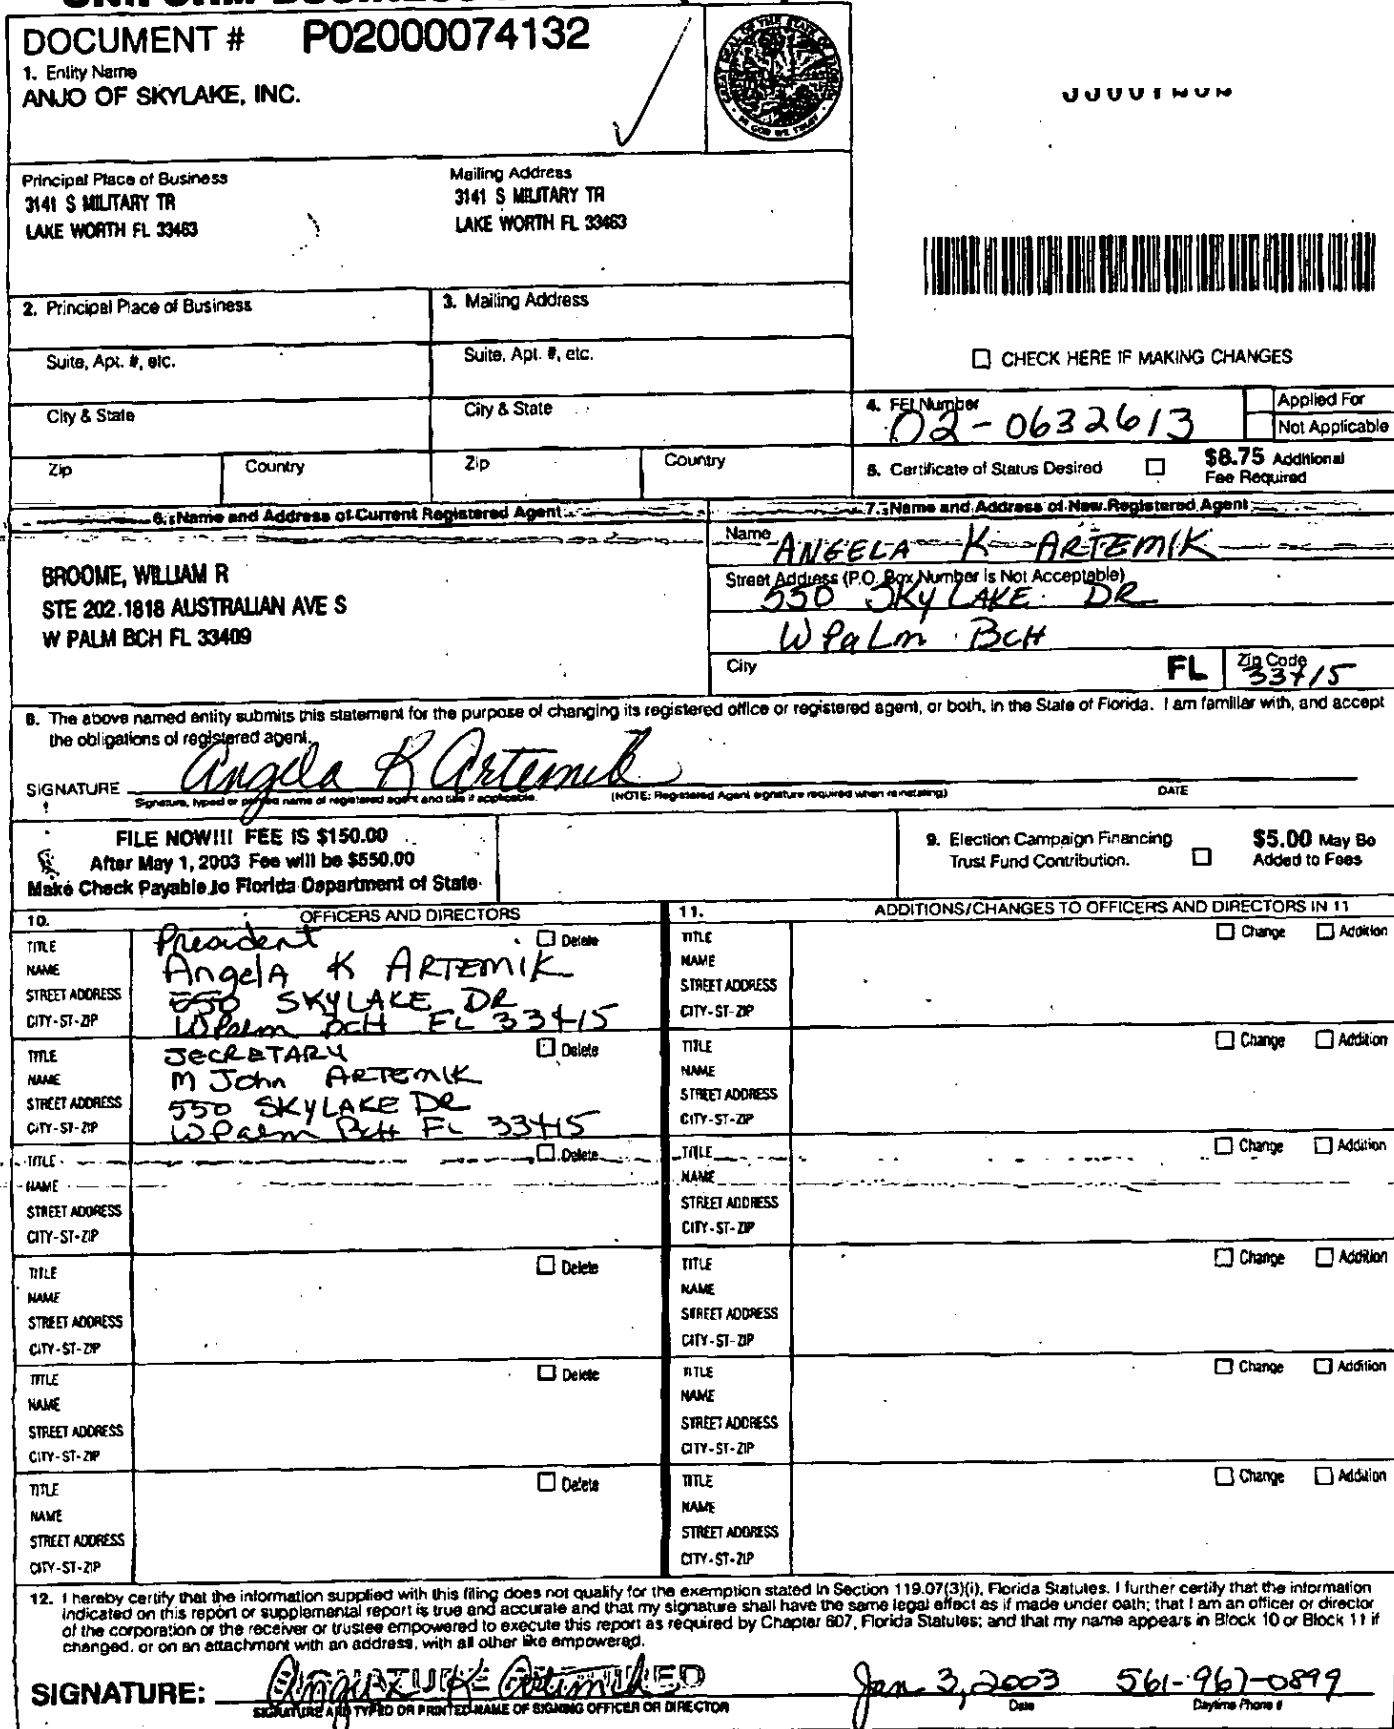 DOCUMENT # P02000074132
1. Entity Name
ANJO OF SKYLAKE, INC.
Principal Place of Business
3141 S MILITARY TR
LAKE WORTH FL 33463
Mailing Address
3141 S MILITARY TR
LAKE WORTH FL 33463
2. Principal Place of Business
3. Mailing Address
Suite, Apt. #, etc.
Suite, Apt. #, etc.
City & State
City & State
Zip
Country
Zip
Country
CHECK HERE IF MAKING CHANGES
4. FEI Number
02-0632613
Applied For
Not Applicable
5. Certificate of Status Desired
$8.75 Additional
Fee Required
6. Name and Address of Current Registered Agent
BROOME, WILLIAM R
STE 202.1818 AUSTRALIAN AVE S
W PALM BCH FL 33409
7. Name and Address of New Registered Agent
Name ANGELA K ARTEMIK
Street Address (P.O. Box Number is Not Acceptable)
550 SKYLAKE DR
W PaLm BCH
City
FL
Zip Code
33415
8. The above named entity submits this statement for the purpose of changing its registered office or registered agent, or both, in the State of Florida. I am familiar with, and accept
the obligations of registered agent.
SIGNATURE Angela K Artemik
Signature, typed or printed name of registered agent and title if applicable. (NOTE: Registered Agent signature required when reinstating) DATE
FILE NOW!!! FEE IS $150.00
After May 1, 2003 Fee will be $550.00
Make Check Payable to Florida Department of State
9. Election Campaign Financing
Trust Fund Contribution.
$5.00 May Be
Added to Fees
10. OFFICERS AND DIRECTORS
TITLE President Delete
NAME Angela K ARTEMIK
STREET ADDRESS 550 SKYLAKE DR
CITY-ST-ZIP W Palm BCH FL 33415
TITLE SECRETARY Delete
NAME M John ARTEMIK
STREET ADDRESS 550 SKYLAKE DR
CITY-ST-ZIP W Palm BCH FL 33415
TITLE Delete
NAME
STREET ADDRESS
CITY-ST-ZIP
TITLE Delete
NAME
STREET ADDRESS
CITY-ST-ZIP
TITLE Delete
NAME
STREET ADDRESS
CITY-ST-ZIP
TITLE Delete
NAME
STREET ADDRESS
CITY-ST-ZIP
11. ADDITIONS/CHANGES TO OFFICERS AND DIRECTORS IN 11
TITLE Change Addition
NAME
STREET ADDRESS
CITY-ST-ZIP
TITLE Change Addition
NAME
STREET ADDRESS
CITY-ST-ZIP
TITLE Change Addition
NAME
STREET ADDRESS
CITY-ST-ZIP
TITLE Change Addition
NAME
STREET ADDRESS
CITY-ST-ZIP
TITLE Change Addition
NAME
STREET ADDRESS
CITY-ST-ZIP
TITLE Change Addition
NAME
STREET ADDRESS
CITY-ST-ZIP
12. I hereby certify that the information supplied with this filing does not qualify for the exemption stated in Section 119.07(3)(i), Florida Statutes. I further certify that the information
indicated on this report or supplemental report is true and accurate and that my signature shall have the same legal effect as if made under oath; that I am an officer or director
of the corporation or the receiver or trustee empowered to execute this report as required by Chapter 607, Florida Statutes; and that my name appears in Block 10 or Block 11 if
changed, or on an attachment with an address, with all other like empowered.
SIGNATURE: SIGNATURE REQUIRED Angela K Artemik Jan 3, 2003 561-967-0899
SIGNATURE AND TYPED OR PRINTED NAME OF SIGNING OFFICER OR DIRECTOR Date Daytime Phone #